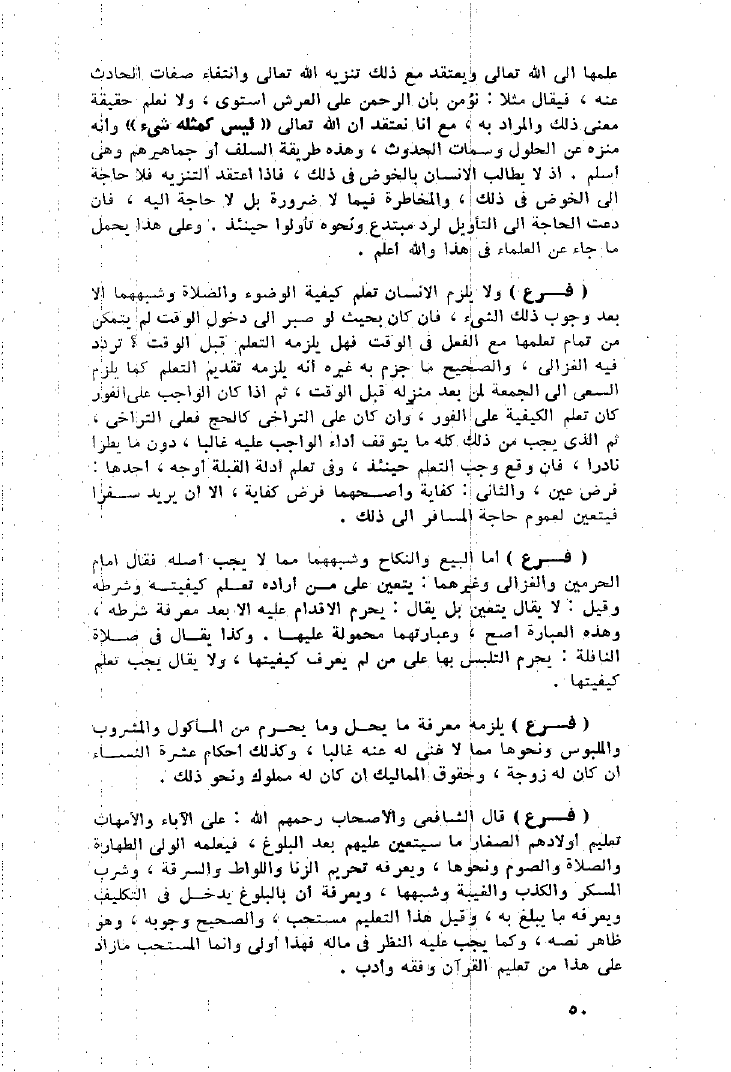 علمها الى الله تعالى ويعتقد مع ذلك تنزيه الله تعالى وانتفاء صفات الحادث
عنه ، فيقال مثلا : نؤمن بأن الرحمن على العرش استوى ، ولا نعلم حقيقة
معنى ذلك والمراد به ، مع أنا نعتقد أن الله تعالى « ليس كمثله شىء » وأنه
منزه عن الحلول وسمات الحدوث ، وهذه طريقة السلف أو جماهيرهم وهى
أسلم . اذ لا يطالب الانسان بالخوض فى ذلك ، فاذا اعتقد التنزيه فلا حاجة
الى الخوض فى ذلك ، والمخاطرة فيما لا ضرورة بل لا حاجة اليه ، فان
دعت الحاجة الى التأويل لرد مبتدع ونحوه تأولوا حينئذ . وعلى هذا يحمل
ما جاء عن العلماء فى هذا والله أعلم .
( فـــرع ) ولا يلزم الانسان تعلم كيفية الوضوء والصلاة وشبههما الا
بعد وجوب ذلك الشىء ، فان كان بحيث لو صبر الى دخول الوقت لم يتمكن
من تمام تعلمها مع الفعل فى الوقت فهل يلزمه التعلم قبل الوقت ؟ تردد
فيه الغزالى ، والصحيح ما جزم به غيره أنه يلزمه تقديم التعلم كما يلزم
السعى الى الجمعة لمن بعد منزله قبل الوقت ، ثم اذا كان الواجب على الفور
كان تعلم الكيفية على الفور ، وان كان على التراخى كالحج فعلى التراخى ،
ثم الذى يجب من ذلك كله ما يتوقف أداء الواجب عليه غالبا ، دون ما يطرأ
نادرا ، فان وقع وجب التعلم حينئذ ، وفى تعلم أدلة القبلة أوجه ، أحدها :
فرض عين ، والثانى : كفاية وأصـــحهما فرض كفاية ، الا أن يريد ســـفرا
فيتعين لعموم حاجة المسافر الى ذلك .
( فـــرع ) أما البيع والنكاح وشبههما مما لا يجب أصله فقال امام
الحرمين والغزالى وغيرهما : يتعين على مـــن أراده تعـــلم كيفيتـــه وشرطه
وقيل : لا يقال يتعين بل يقال : يحرم الاقدام عليه الا بعد معرفة شرطه ،
وهذه العبارة أصح ، وعبارتهما محمولة عليهـــا . وكذا يقـــال فى صـــلاة
النافلة : يحرم التلبس بها على من لم يعرف كيفيتها ، ولا يقال يجب تعلم
كيفيتها .
( فـــرع ) يلزمه معرفة ما يحـــل وما يحـــرم من المـــأكول والمشروب
والملبوس ونحوها مما لا غنى له عنه غالبا ، وكذلك أحكام عشرة النســـاء
ان كان له زوجة ، وحقوق المماليك ان كان له مملوك ونحو ذلك .
( فـــرع ) قال الشافعى والأصحاب رحمهم الله : على الآباء والأمهات
تعليم أولادهم الصغار ما سيتعين عليهم بعد البلوغ ، فيعلمه الولى الطهارة
والصلاة والصوم ونحوها ، ويعرفه تحريم الزنا واللواط والسرقة ، وشرب
المسكر والكذب والغيبة وشبهها ، ويعرفه أن بالبلوغ يدخـــل فى التكليف
ويعرفه ما يبلغ به ، وقيل هذا التعليم مستحب ، والصحيح وجوبه ، وهو
ظاهر نصه ، وكما يجب عليه النظر فى ماله فهذا أولى وانما المستحب مازاد
على هذا من تعليم القرآن وفقه وأدب .
٥٠